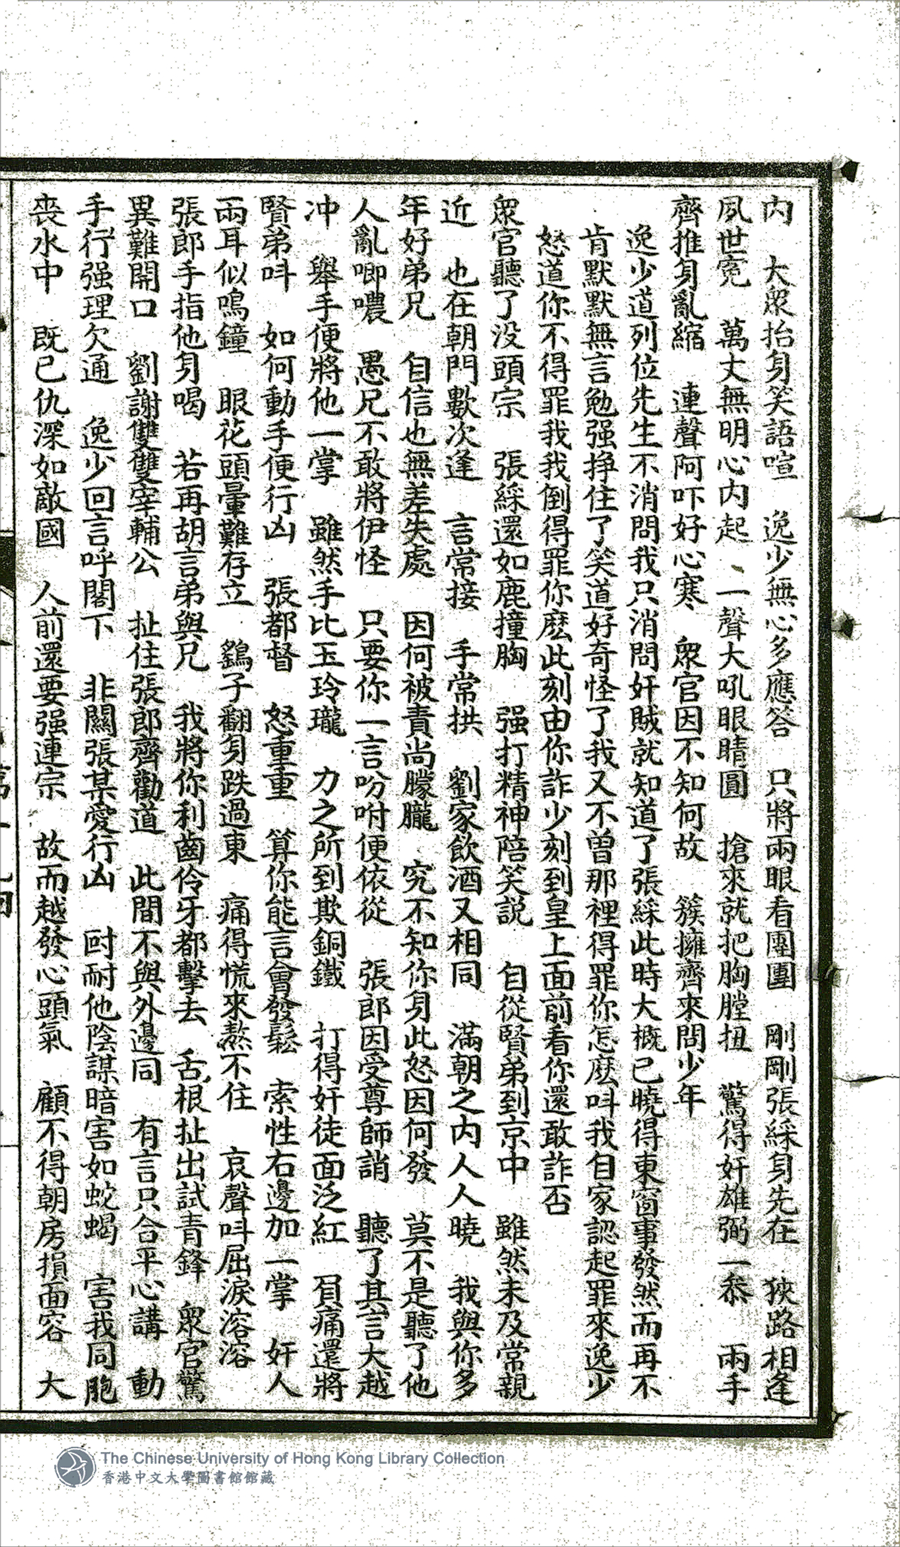 內　大眾抬身笑語喧　逸少無心多應答　只將兩眼看團團　剛剛張綵身先在　狹路相逢
夙世寃　萬丈無明心內起　一聲大吼眼睛圓　搶來就把胸膛扭　驚得奸雄弼一叅　兩手
齊推身亂縮　連聲阿吓好心寒　眾官因不知何故　簇擁齊來問少年
逸少道列位先生不消問我只消問奸賊就知道了張綵此時大概已曉得東窗事發然而再不
肯默默無言勉强挣住了笑道好奇怪了我又不曾那裡得罪你怎麽呌我自家認起罪來逸少
怒道你不得罪我我倒得罪你麽此刻由你詐少刻到皇上面前看你還敢詐否
眾官聽了没頭宗　張綵還如鹿撞胸　强打精神陪笑説　自從賢弟到京中　雖然未及常親
近　也在朝門數次逢　言常接　手常拱　劉家飲酒又相同　滿朝之內人人曉　我與你多
年好弟兄　自信也無差失處　因何被責尚朦朧　究不知你身此怒因何發　莫不是聽了他
人亂唧噥　愚兄不敢將伊怪　只要你一言吩咐便依從　張郎因受尊師誚　聽了其言大越
冲　舉手便將他一掌　雖然手比玉玲瓏　力之所到欺銅鐵　打得奸徒面泛紅　負痛還將
賢弟呌　如何動手便行凶　張都督　怒重重　算你能言會發鬆　索性右邊加一掌　奸人
兩耳似鳴鐘　眼花頭暈難存立　鷂子翻身跌過東　痛得慌來熬不住　哀聲呌屈淚溶溶
張郎手指他身喝　若再胡言弟與兄　我將你利齒伶牙都擊去　舌根扯出試青鋒　眾官驚
異難開口　劉謝雙雙宰輔公　扯住張郎齊勸道　此間不與外邊同　有言只合平心講　動
手行强理欠通　逸少回言呼閣下　非關張某愛行凶　叵耐他陰謀暗害如蛇蝎　害我同胞
喪水中　既已仇深如敵國　人前還要强連宗　故而越發心頭氣　顧不得朝房損面容　大
The Chinese University of Hong Kong Library Collection
香港中文大學圖書館館藏